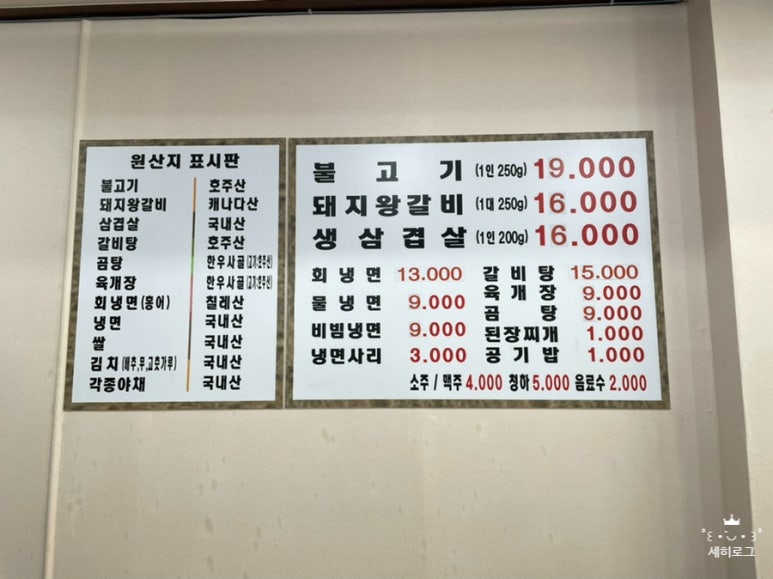 원산지 표시판
불고기 호주산
돼지왕갈비 캐나다산
삼겹살 국내산
갈비탕 호주산
곰탕 한우사골(고기:호주산)
육개장 한우사골(고기:호주산)
회냉면(홍어) 칠레산
냉면 국내산
쌀 국내산
김치(배추,무,고춧가루) 국내산
각종야채 국내산
불고기 (1인 250g) 19.000
돼지왕갈비 (1대 250g) 16.000
생삼겹살 (1인 200g) 16.000
회냉면 13.000 갈비탕 15.000
물냉면 9.000 육개장 9.000
곰탕 9.000
비빔냉면 9.000 된장찌개 1.000
냉면사리 3.000 공기밥 1.000
소주 / 맥주 4.000 청하 5.000 음료수 2.000
세히로그